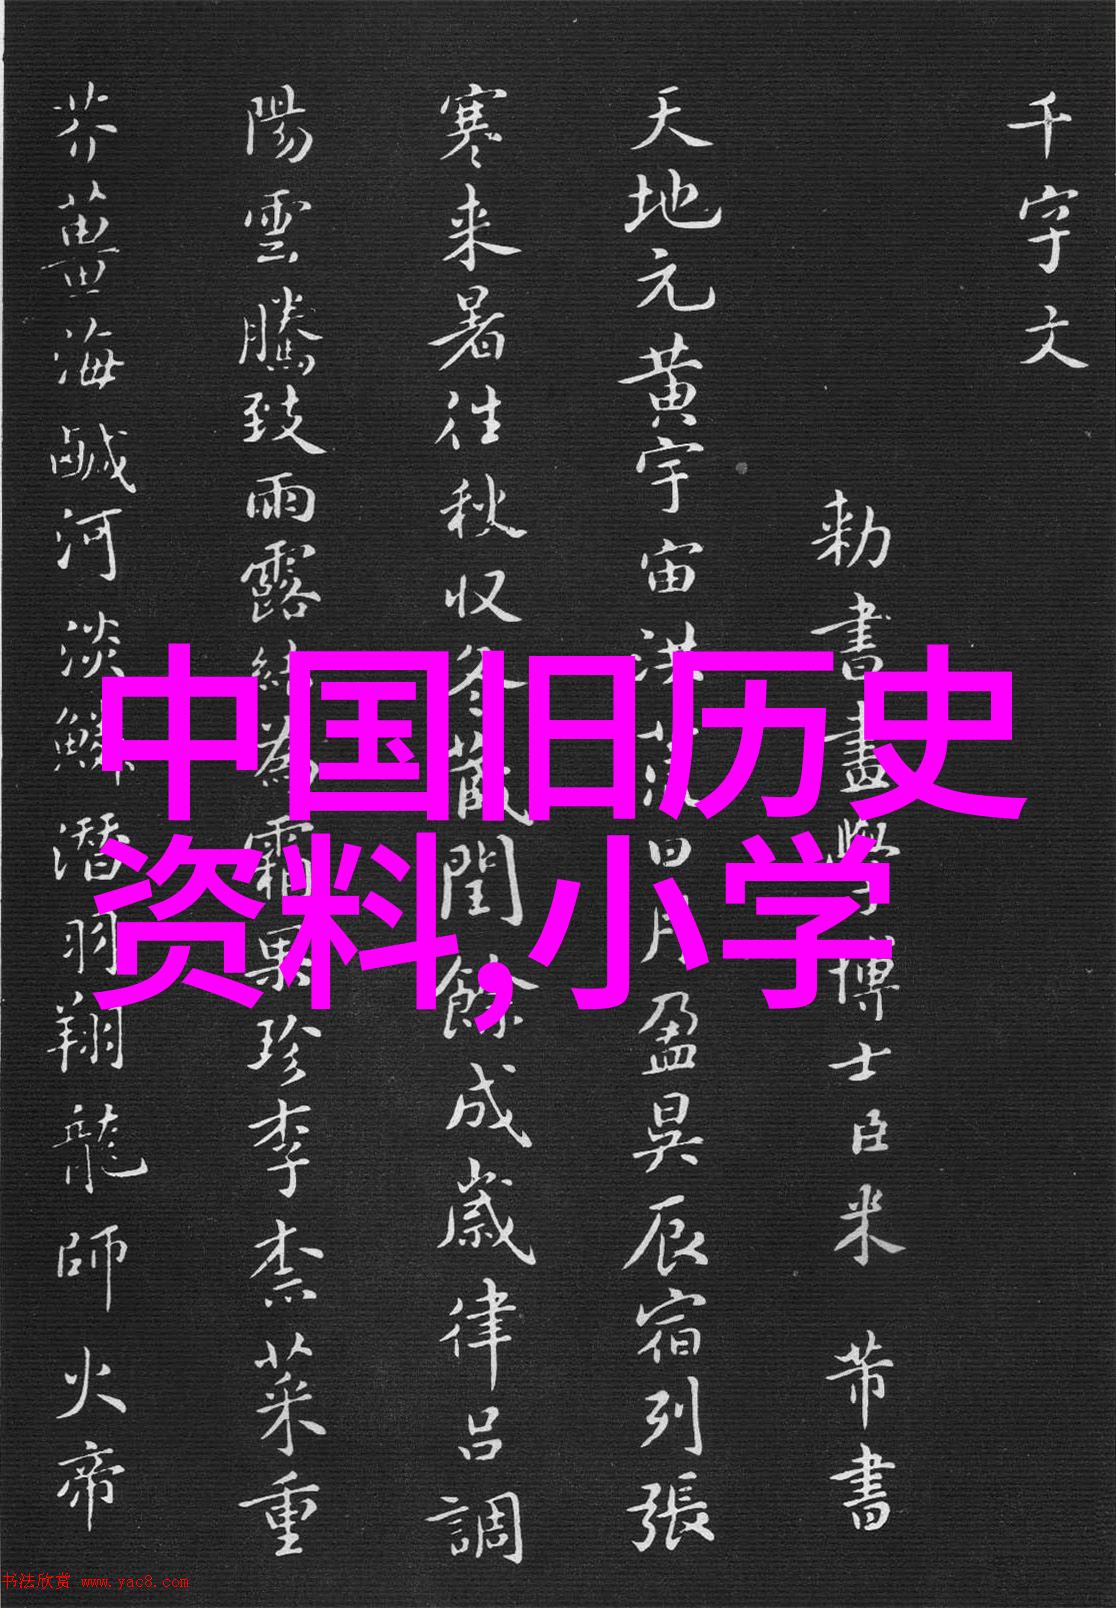 千字文
勅書畫學博士臣米芾書
天地元黄宇宙洪荒日月盈昃辰宿列張
寒来暑往秋収冬蔵閏餘成歳律吕調
陽雲騰致雨露結為霜果珍李柰菜重
芥薑海鹹河淡鱗潛羽翔龍師火帝
中国旧历史
资料,小学
书法欣赏 www.yac8.com